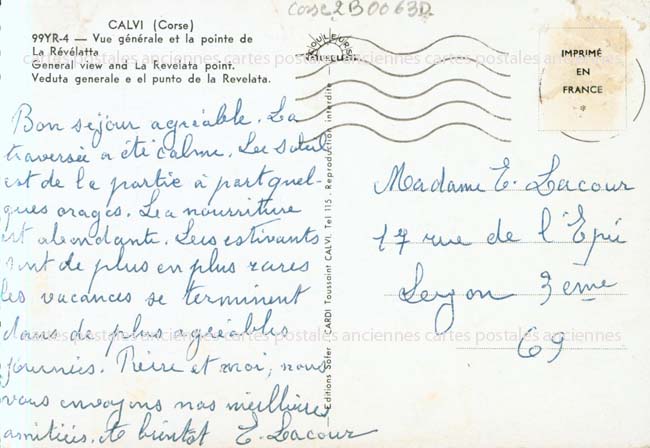 Corse 2B0063D
CALVI (Corse)
99YR-4 — Vue générale et la pointe de
La Révélatta
General view and La Revelata point.
Veduta generale e el punto de la Revelata.
IMPRIMÉ
EN
FRANCE
cartes postales anciennes cartes postales anciennes cartes postales anciennes
Bon séjour agréable. La
traversée a été calme. Le soleil
est de la partie à part quel-
ques orages. La nourriture
est abondante. Les estivants
sont de plus en plus rares
les vacances se terminent
dans de plus agréables
journées. et moi, nous
vous envoyons nos meilleures
amitiés. A bientôt E. Lacour
Editions Sofer — CARDI Toussaint CALVI. Tel 115 - Reproduction interdite -
COULEURS
NATURELLES
Madame E. Lacour
17 rue de l'Epé
Lyon 3ème
69
cartes postales anciennes cartes postales anciennes cartes postales anciennes